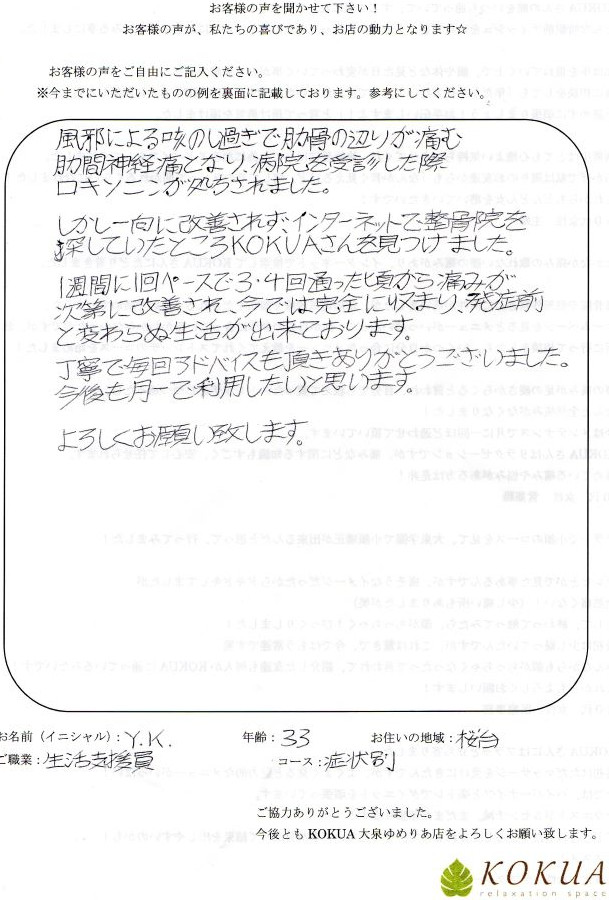 お客様の声を聞かせて下さい！
お客様の声が、私たちの喜びであり、お店の動力となります☆
お客様の声をご自由にご記入ください。
※今までにいただいたものの例を裏面に記載しております。参考にしてください。
風邪による咳のし過ぎで肋骨の辺りが痛む
肋間神経痛となり、病院を受診した際
ロキソニンが処方されました。
しかし一向に改善されず、インターネットで整骨院を
探していたところKOKUAさんを見つけました。
1週間に1回ペースで3・4回通った頃から痛みが
次第に改善され、今では完全に収まり、発症前
と変わらぬ生活が出来ております。
丁寧で毎回アドバイスも頂きありがとうございました。
今後も月一で利用したいと思います。
よろしくお願い致します。
お名前（イニシャル）：Y.K. 年齢：33 お住いの地域：桜台
ご職業：生活支援員 コース：症状別
ご協力ありがとうございました。
今後とも KOKUA 大泉ゆめりあ店をよろしくお願い致します。
KOKUA
relaxation space